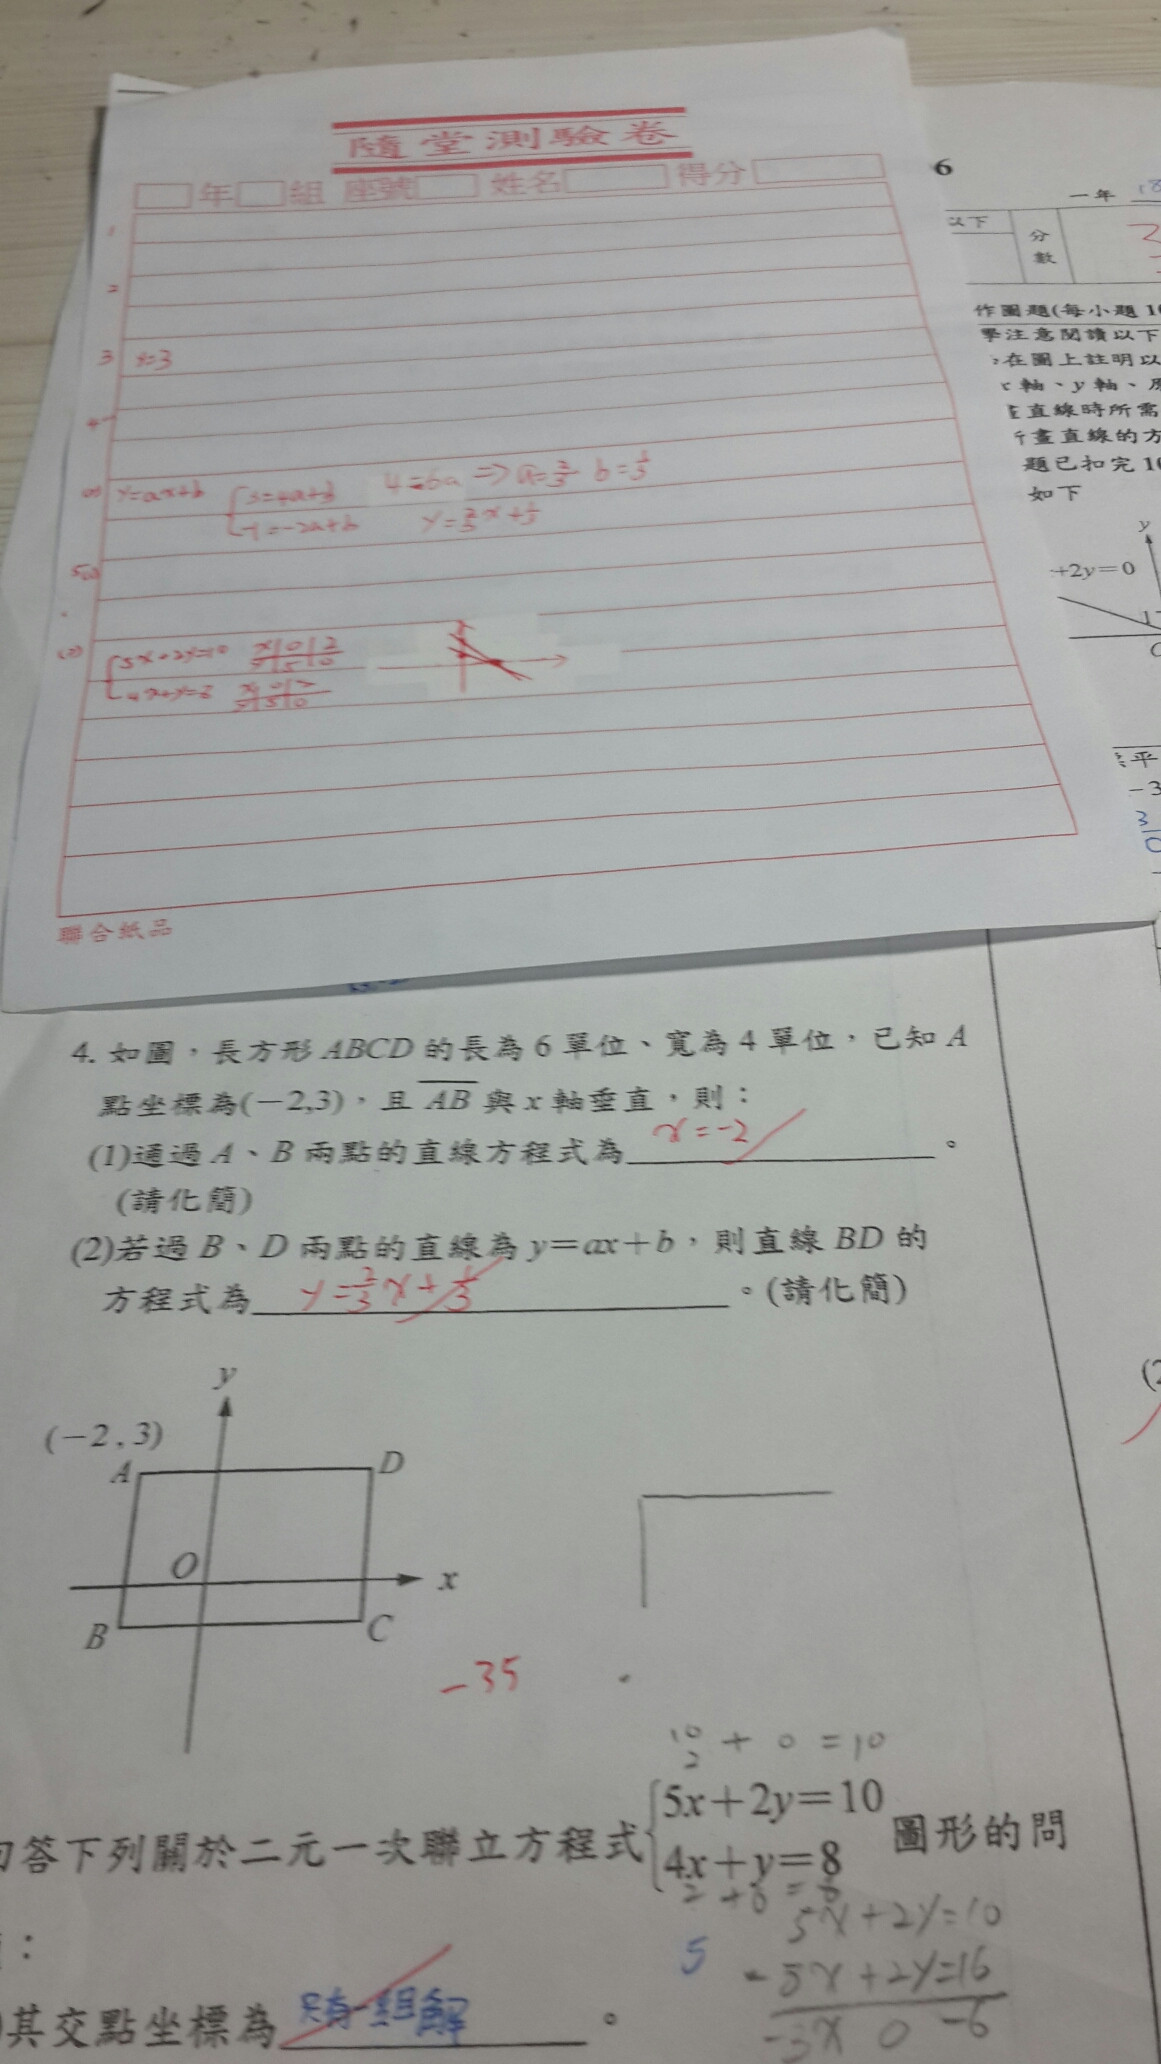 隨堂測驗卷
年 組 座號 姓名 得分
1
2
3 x=3
4
(2) y=ax+b {3=4a+b 4=6a ⇒ a=2/3 b=1/3
-1=-2a+b y=2/3x+1/3
5(1)
(2) {5x+2y=10 x|0|2 y|5|0
聯合紙品
6
一年
以下 分數
作圖題(每小題1
學注意閱讀以下
,在圖上註明以
軸、y軸、
直線時所需
畫直線的方
題已扣完1
如下
y
+2y=0
平
-3
3
0
4. 如圖,長方形ABCD的長為6單位、寬為4單位,已知A
點坐標為(-2,3),且AB與x軸垂直,則:
(1)通過A、B兩點的直線方程式為 x=-2 。
(請化簡)
(2)若過B、D兩點的直線為y=ax+b,則直線BD的
方程式為 y=2/3x+1/3 。(請化簡)
y
(-2,3)
A D
O x
B C
-35
10 + 0 = 10
2
答下列關於二元一次聯立方程式{5x+2y=10 圖形的問
4x+y=8
:
5x+2y=10
5 - 8x+2y=16
-3x 0 -6
其交點坐標為 只有一組解 。